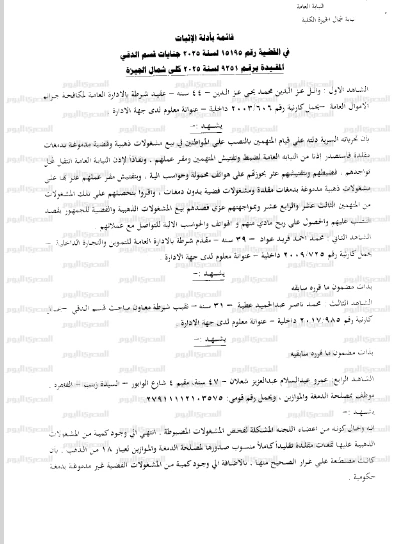 النيابة العامة
نيابة شمال الجيزة الكلية
قائمة بأدلة الإثبات
في القضية رقم ١٥١٩٥ لسنة ٢٠٢٥ جنايات قسم الدقي
المقيدة برقم ٩٢٥١ لسنة ٢٠٢٥ كلى شمال الجيزة
الشاهد الأول : وائل عز الدين محمد يحي عز الدين – ٤٤ سنه – عقيد شرطة بالادارة العامة لمكافحة جرائم
الاموال العامة – يحمل كارنية رقم ٢٠٠٣/٦٠٦ داخلية – عنوانة معلوم لدى جهة الادارة
يشهــد :-
بان تحرياته السرية دلته على قيام المتهمين بالنصب على المواطنين في بيع مشغولات ذهبية وفضية مدموغة بدمغات
مقلدة فاستصدر اذنا من النيابة العامة لضبط وتفتيش المتهمين ومقر عملهم . ونفاذا لإذن النيابة العامة انتقل لمحل
تواجدهم . فضبطهم وبتفتيشهم عثر بحوزتهم على هواتف محمولة وحواسب الية . وبتفتيش مقر عملهم عثر بها على
مشغولات ذهبية مدموغة بدمغات مقلدة ومشغولات فضية بدون دمغات . واقروا بتحصلهم على تلك المشغولات
من المتهمين الثالث عشر والرابع عشر وبمواجهتهم عزى قصدهم بيع المشغولات الذهبية والفضية للجمهور بقصد
النصب عليهم والحصول على ربح مادي منهم و الهواتف والحواسب الالية للتواصل مع عملائهم
الشاهد الثاني : محمد احمد فريد عواد – ٣٩ سنه – مقدم شرطة بالادارة العامة للتموين والتجارة الداخلية –
يحمل كارنية رقم ٢٠٠٩/٧٢٥ داخلية – عنوانة معلوم لدى جهة الادارة .
يشهــد :-
بذات مضمون ما قرره سابقه
الشاهد الثالث : محمد ناصر عبدالحميد عطية – ٣١ سنه – نقيب شرطة معاون مباحث قسم الدقي –
كارنية رقم ٢٠١٧/٩٨٥ داخلية – عنوانة معلوم لدى جهة الادارة .
يشهــد :-
بذات مضمون ما قرره سابقيه
الشاهد الرابع : عمرو عبدالسلام عبدالعزيز شعلان – ٤٧ سنة، مقيم ٤ شارع الوابور – السيدة زينب – القاهرة .
موظف بمصلحة الدمغة والموازين ، ويحمل رقم قومى: ٢٧٩١١١١٢١٠٣٥٧٥
يشهــد :-
انه وحال كونه من اعضاء اللجنه المشكلة لفحص المشغولات المضبوطة . انتهي الي وجود كمية من المشغولات
الذهبية عليها دمغات مقلدة تقليداً كاملاً منسوب صدورها لمصلحة الدمغة والموازين لعيار ١٨ من الذهب . بان
كانت مصطنعة على غرار الصحيح منها . بالاضافة الي وجود كمية من المشغولات الفضية غير مدموغة بدمغة
حكومية .
المصري اليوم